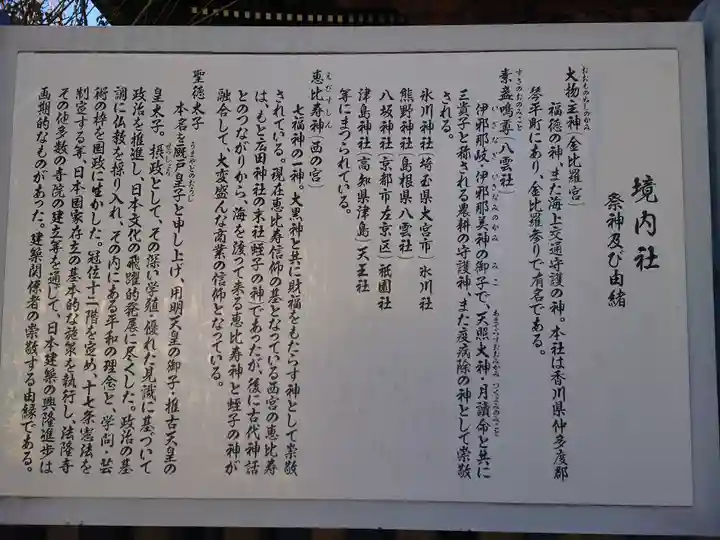 境内社
祭神及び由緒
おおものぬしのかみ
大物主神(金比羅宮)
福徳の神、また海上交通守護の神。本社は香川県仲多度郡
琴平町にあり、金比羅参りで有名である。
すさのおのみこと
素盞鳴尊(八雲社)
いざなぎ いざなみのかみ みこ あまてらすおおみかみ つくよみのみこと
伊邪那岐、伊邪那美神の御子で、天照大神・月讀命と共に
三貴子と称される農耕の守護神、また疫病除の神として崇敬
される。
氷川神社(埼玉県大宮市)氷川社
熊野神社(島根県八雲社)
八坂神社(京都市左京区)祇園社
津島神社(高知県津島)天王社
等にまつられている。
えびすしん
恵比寿神(西の宮)
七福神の一神。大黒神と共に財福をもたらす神として崇敬
されている。現在恵比寿信仰の基となっている西宮の恵比寿
は、もと広田神社の末社蛭子の神であったが、後に古代神話
とのつながりから、海を渡って来る恵比寿神と蛭子の神が
融合して、大変盛んな商業の信仰となっている。
聖徳太子
うまやどのおうじ
本名を厩戸皇子と申し上げ、用明天皇の御子・推古天皇の
皇太子。摂政として、その深い学殖・優れた見識に基づいて
政治を推進し、日本文化の飛躍的発展に尽くした。政治の基
調に仏教を採り入れ、その内にある平和の理念と、学問・芸
術の粋を国政に生かした。冠位十二階を定め、十七条憲法を
制定する等、日本国家存立の基本的な施策を執行し、法隆寺
その他多数の寺院の建立等を通じて、日本建築の興隆進歩は
画期的なものがあった。建築関係者の崇敬する由縁である。